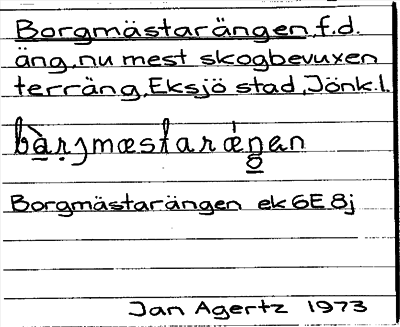 Borgmästarängen, f.d.
äng, nu mest skogbevuxen
terräng, Eksjö stad, Jönk.l.
Borgmästarängen ek 6E 8j
Jan Agertz 1973